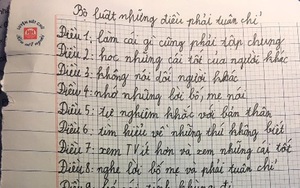 Bộ luật những điều phải tuân chỉ
Điều 1: làm cái gì cũng phải tập chung
Điều 2: học những cái tốt của người khác
Điều 3: không nói dối người khác
Điều 4: nhớ những lời bố mẹ nói
Điều 5: tự nghiêm khắc với bản thân
Điều 6: tìm hiểu về những thứ không biết
Điều 7: xem TV ít hơn và xem những cái tốt
Điều 8: nghe lời bố mẹ và phải tuân chỉ